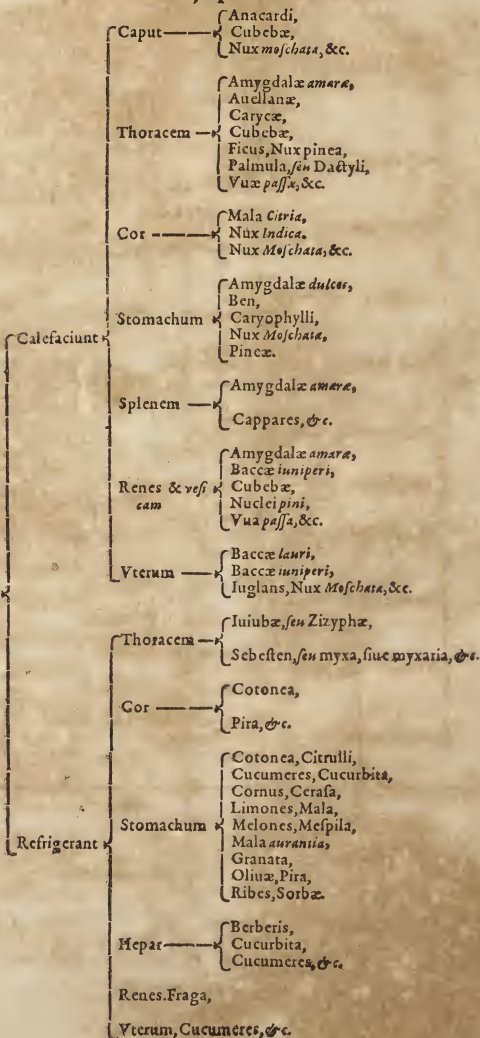 Calefaciunt
Caput
Anacardi,
Cubebæ,
Nux moſchata, &c.
Thoracem
Amygdalæ amaræ,
Auellanæ,
Carycæ,
Cubebæ,
Ficus, Nux pinea,
Palmula, ſeu Dactyli,
Vuæ paſſæ, &c.
Cor
Mala Citria,
Nux Indica.
Nux Moſchata, &c.
Stomachum
Amygdalæ dulces,
Ben,
Caryophylli,
Nux Moſchata,
Pineæ.
Splenem
Amygdalæ amaræ,
Cappares, &c.
Renes & veſi
cam
Amygdalæ amaræ,
Baccæ iuniperi,
Cubebæ,
Nuclei pini,
Vua paſſa, &c.
Vterum
Baccæ lauri,
Baccæ iuniperi,
Iuglans, Nux Moſchata, &c.
Refrigerant
Thoracem
Iuiubæ, ſeu Zizyphæ,
Sebeſten, ſeu myxa, ſiue myxaria, &c.
Cor
Cotonea,
Pira, &c.
Stomachum
Cotonea, Citrulli,
Cucumeres, Cucurbita,
Cornus, Ceraſa,
Limones, Mala,
Melones, Meſpila,
Mala aurantia,
Granata,
Oliuæ, Pira,
Ribes, Sorbæ.
Hepar
Berberis,
Cucurbita,
Cucumeres, &c.
Renes. Fraga,
Vterum, Cucumeres, &c.